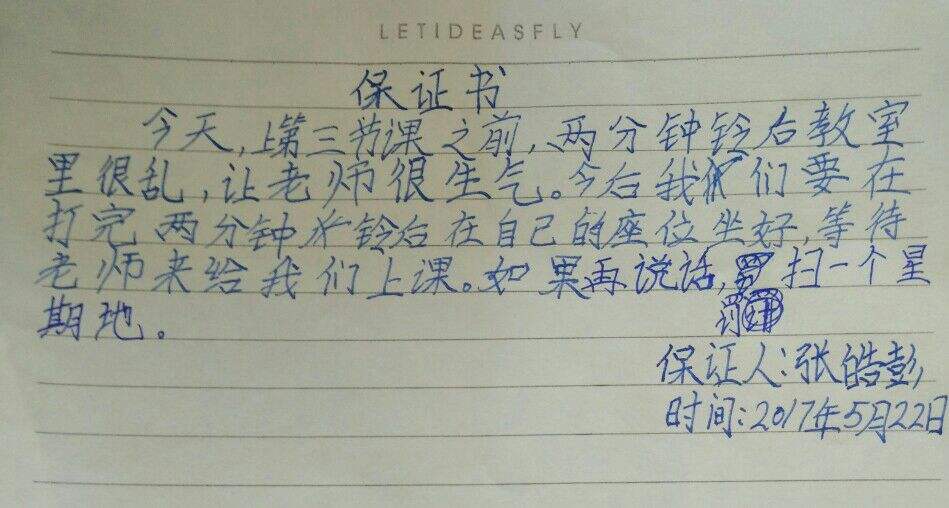 LETIDEASFLY
保证书
今天,上第三节课之前,两分钟铃后教室
里很乱,让老师很生气。今后我们要在
打完两分钟铃后在自己的座位坐好,等待
老师来给我们上课。如果再说话,罚扫一个星
期地。
保证人:张皓彭
时间:2017年5月22日